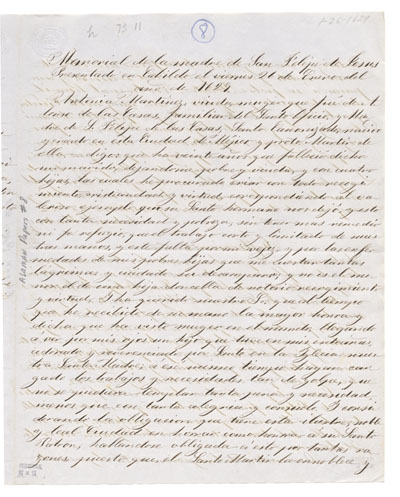 h 73 11
8
Memorial de la madre de San Felipe de Jesus
Presentado en Cabildo el viernes 26 de Enero del
año de 1629
Antonia Martinez, viuda muger que fué de A
lonso de las Casas, familiar del Santo Oficio, y Ma-
dre de S. Felipe de las Casas, Santo Canonizado, nacido
y criado en esta Ciudad de Mejico y proto Martir de
ella = digo que ha veinte años que falleció dicho
mi marido, dejandome pobre y viuda, y con cuatro
hijas, las cuales he procurado criar con todo recogi
miento, cristiandad y virtud, correspondiendo al va
leroso ejemplo que su Santo hermano nos dejó, y esto
con tanta necesidad y sin mas reme
ni refugio, que el trabajo corto y limitado de nues
tras manos, y este falta
medades de mis pobres hijas que me cuestan tantas
lagrimas y cuidado, y no es el me
nor el de como hija doncella de notorio recogimient
y virtud. I ha querido nuestro Sr. que al tiempo
que he recibido de su mano la mayor honra y
dicha que ha visto muger en el mundo, llegando
á ver por mis ojos un hijo que tuve en mis entrañas,
celebrado y reverenciado por Santo en la Iglesia nues
tra Santa Madre, á ese mesmo tiempo hayan car
gado los trabajos y necesidades tan de golpe, que
no se pudiera tanta pena y necesidad
menos que con tanta alegria y consuelo. I consi
derando la obligacion que tiene esta ilustre, noble
y leal Ciudad en honrar como honra á su Santo
Patron, hallandose obligada á esto por tantas ra
zones puesto que el Santo Martir la ennoblece y